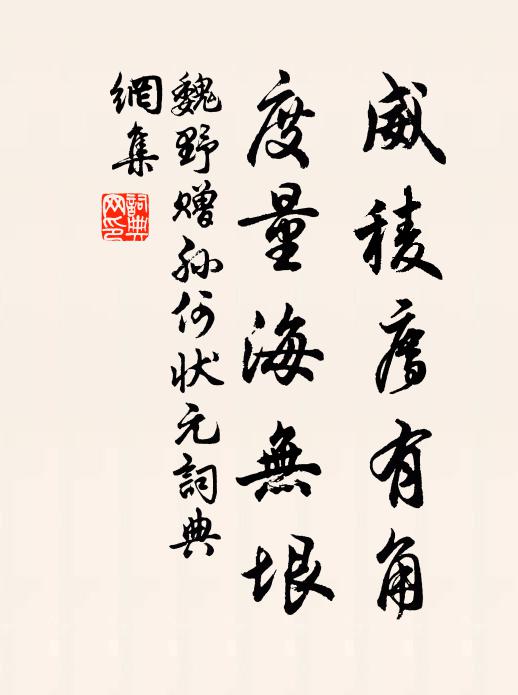 威稜廌有角
度量海無垠
魏野贈孫何狀元詞典
網集
詞典
网印